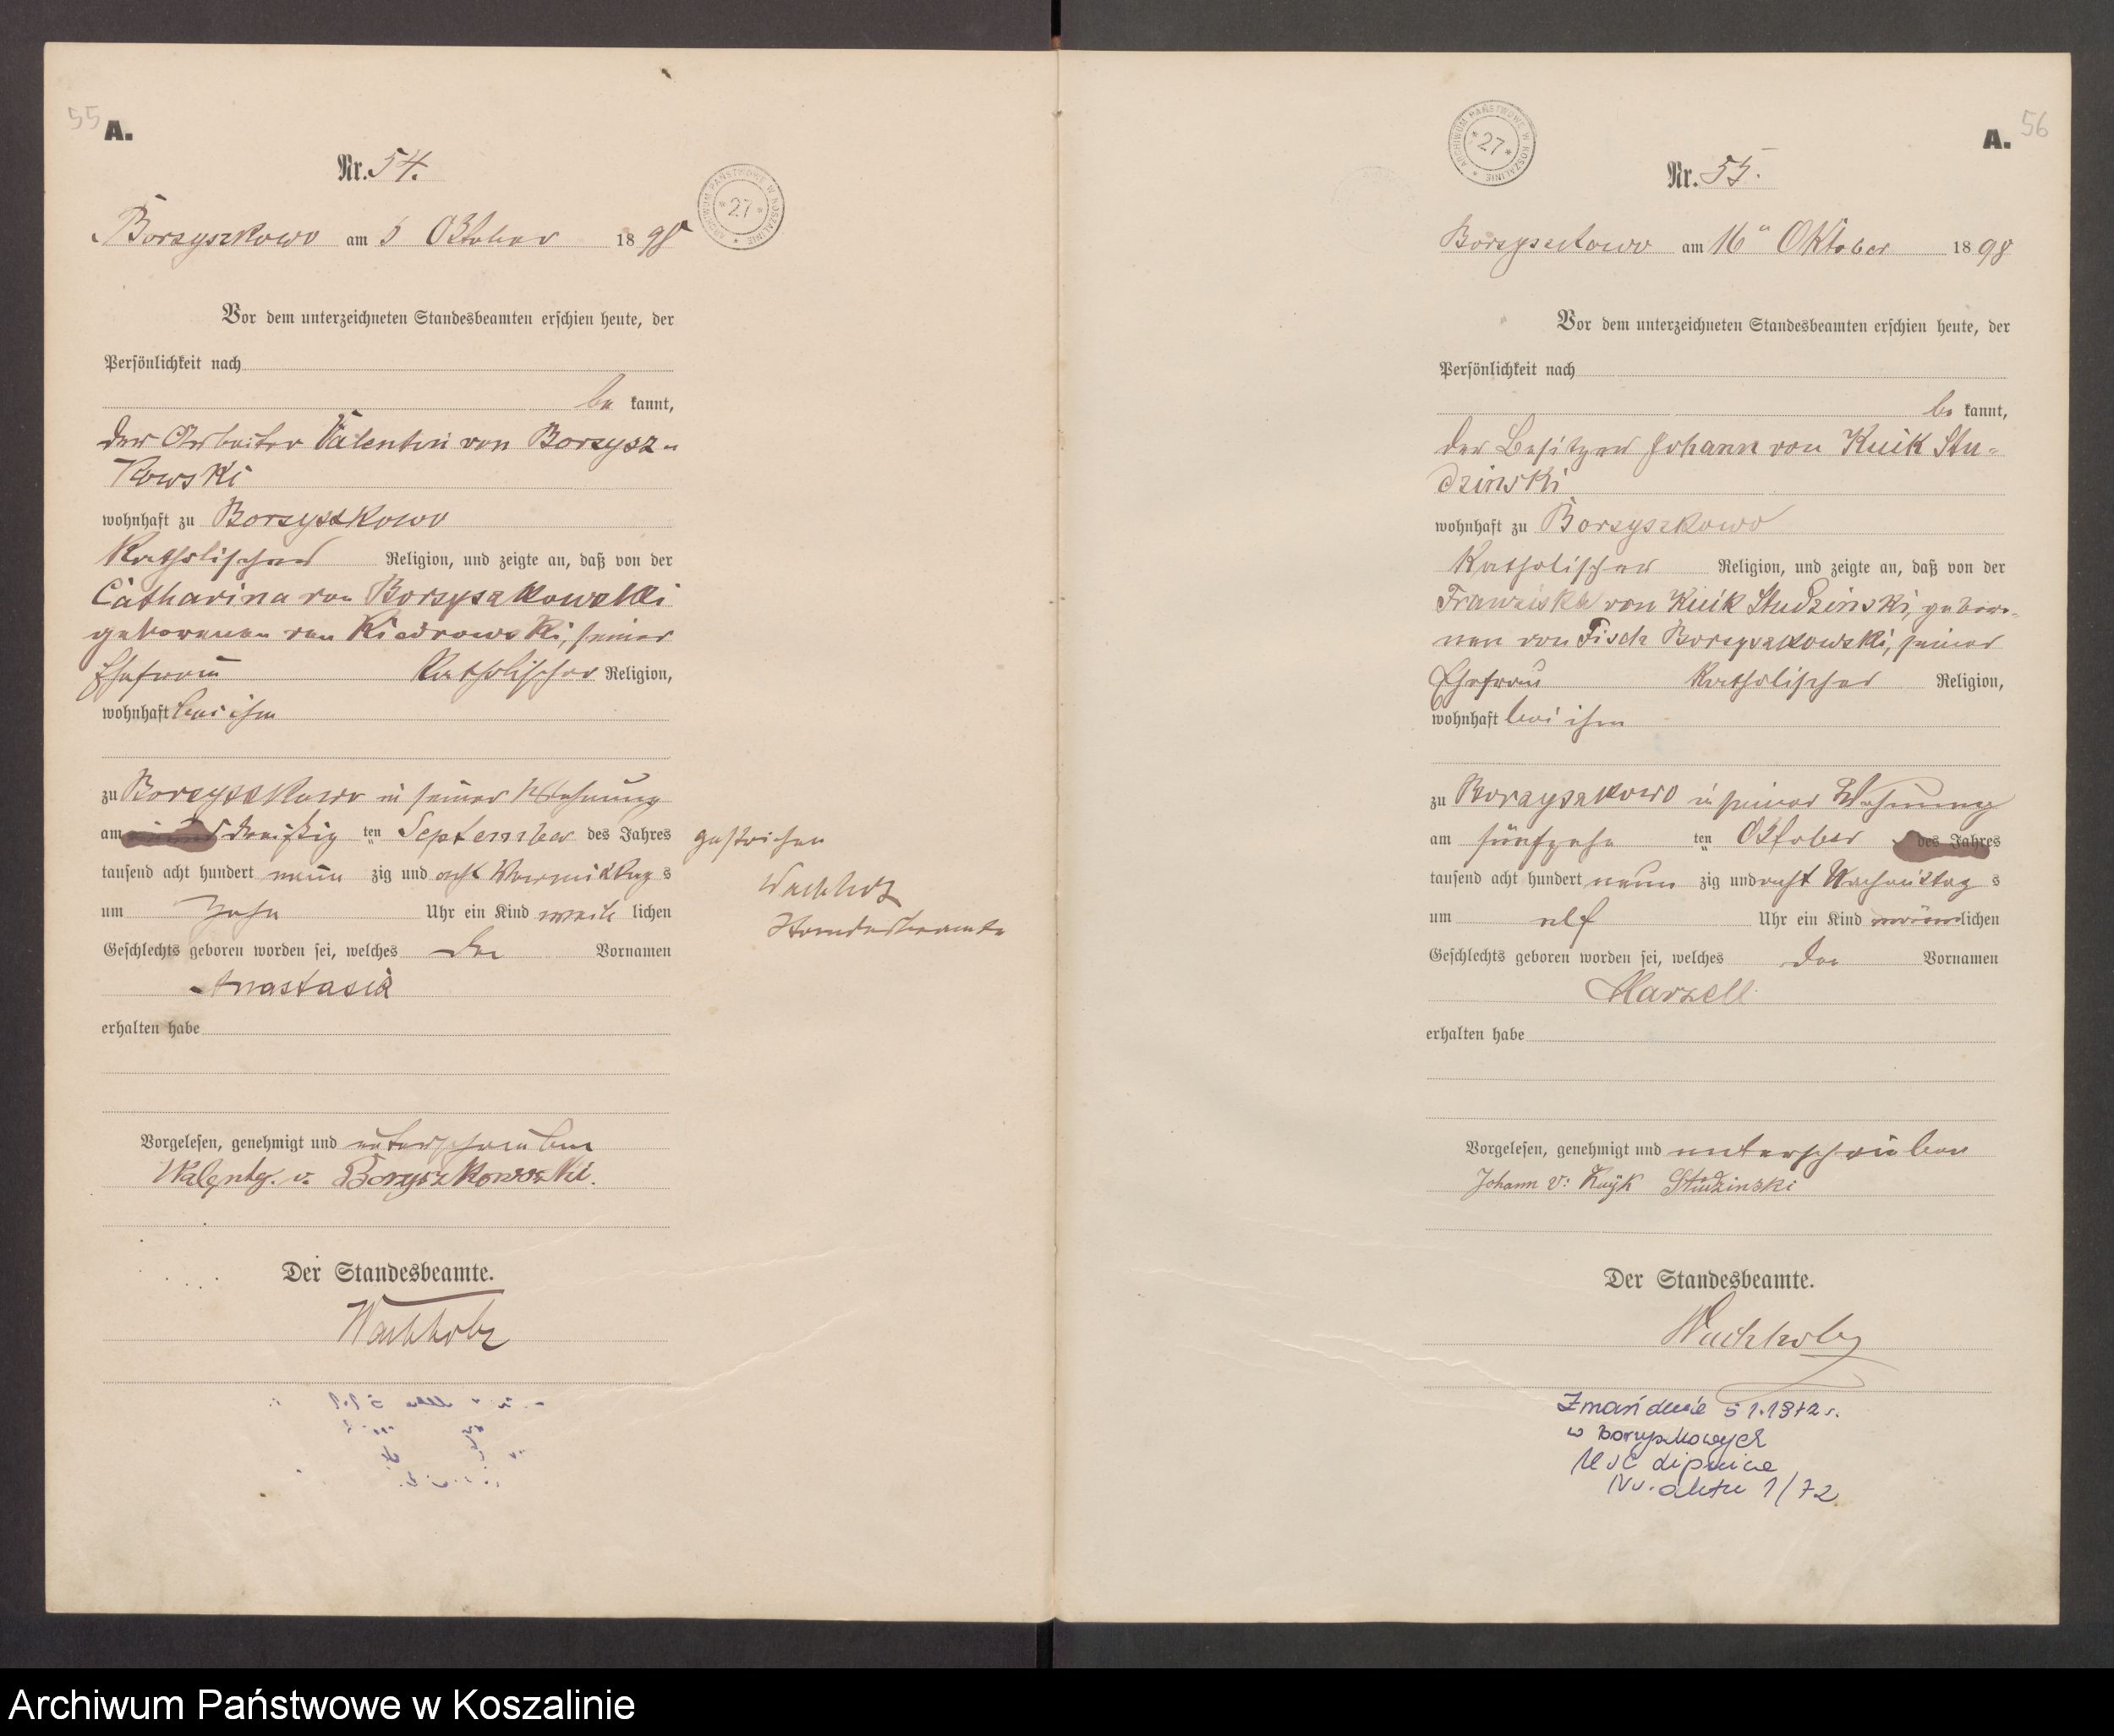 55
A.
Nr. 54.
ARCHIWUM PAŃSTWOWE W KOSZALINIE
* 27 *
Borzyszkowo am 5 Oktober 1898
Vor dem unterzeichneten Standesbeamten erschien heute, der
Persönlichkeit nach
be kannt,
der Arbeiter Valentin von Borzysz-
kowski
wohnhaft zu Borzyszkowo
Katholischer Religion, und zeigte an, daß von der
Catharina von Borzyszkowski
geborenen von Kiedrowski, seiner
Ehefrau Katholischer Religion,
wohnhaft bei ihm
zu Borzyszkowo in seiner Wohnung
am dreißig ten September des Jahres
tausend acht hundert neun zig und acht Vormittag s
um Zehn Uhr ein Kind weib lichen
Geschlechts geboren worden sei, welches den Vornamen
Anastasia
erhalten habe
gestrichen
Wachholz
Standesbeamte
Vorgelesen, genehmigt und unterschrieben
Walenty. v. Borzyszkowski.
Der Standesbeamte.
Wachholz
A.
56
Nr. 55.
ARCHIWUM PAŃSTWOWE W KOSZALINIE
* 27 *
Borzyszkowo am 16 Oktober 1898
Vor dem unterzeichneten Standesbeamten erschien heute, der
Persönlichkeit nach
be kannt,
der Besitzer Johann von Kuik Stu-
dzinski
wohnhaft zu Borzyszkowo
Katholischer Religion, und zeigte an, daß von der
Franziska von Kuik Studzinski, gebore-
nen von Fisch Borzyszkowski, seiner
Ehefrau Katholischer Religion,
wohnhaft bei ihm
zu Borzyszkowo in seiner Wohnung
am fünfzehn ten Oktober des Jahres
tausend acht hundert neun zig und acht Nachmittag s
um elf Uhr ein Kind männlichen
Geschlechts geboren worden sei, welches den Vornamen
Marzell
erhalten habe
Vorgelesen, genehmigt und unterschrieben
Johann v: Kuÿk Studzinski
Der Standesbeamte.
Wachholz
5 1.1972 r.
w Borzyszkowych
USC Lipnica
Nr. aktu 1/72
Archiwum Państwowe w Koszalinie